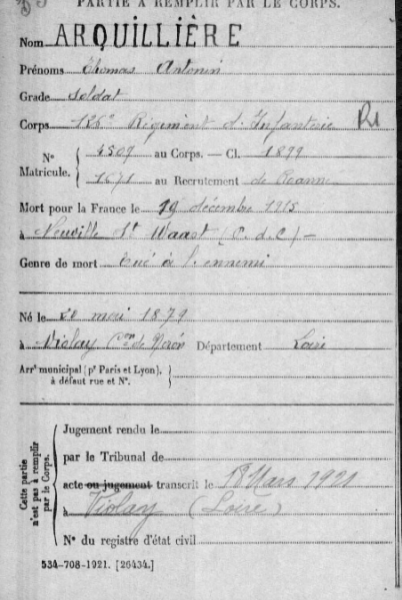 PARTIE À REMPLIR PAR LE CORPS.
Nom ARQUILLIÈRE
Prénoms Thomas Antonin
Grade Soldat
Corps 126e Régiment d'Infanterie
N° Matricule. { 4807 au Corps. — Cl. 1899
1671 au Recrutement de Roanne
Mort pour la France le 19 décembre 1915
à Neuville St Waast (P. d. C) —
Genre de mort tué à l'ennemi
Né le 20 mai 1879
à Violay Département Loire
Arrt municipal (pr Paris et Lyon), à défaut rue et N°.
Cette partie n'est pas à remplir par le Corps.
Jugement rendu le
par le Tribunal de
acte ou jugement transcrit le 18 Mars 1921
à Violay (Loire)
N° du registre d'état civil
534-708-1921. [26434.]